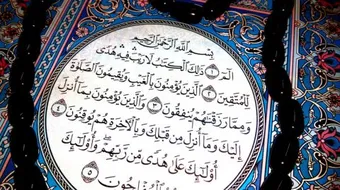 بِسْمِ اللَّهِ الرَّحْمَٰنِ الرَّحِيمِ
الٓمٓ ۝١ ذَٰلِكَ الْكِتَابُ لَا رَيْبَ فِيهِ هُدًى
لِّلْمُتَّقِينَ ۝٢ الَّذِينَ يُؤْمِنُونَ بِالْغَيْبِ وَيُقِيمُونَ الصَّلَاةَ
وَمِمَّا رَزَقْنَاهُمْ يُنفِقُونَ ۝٣ وَالَّذِينَ يُؤْمِنُونَ بِمَا أُنزِلَ
إِلَيْكَ وَمَا أُنزِلَ مِن قَبْلِكَ وَبِالْآخِرَةِ هُمْ يُوقِنُونَ ۝٤
أُولَٰئِكَ عَلَىٰ هُدًى مِّن رَّبِّهِمْ وَأُولَٰئِكَ
هُمُ الْمُفْلِحُونَ ۝٥